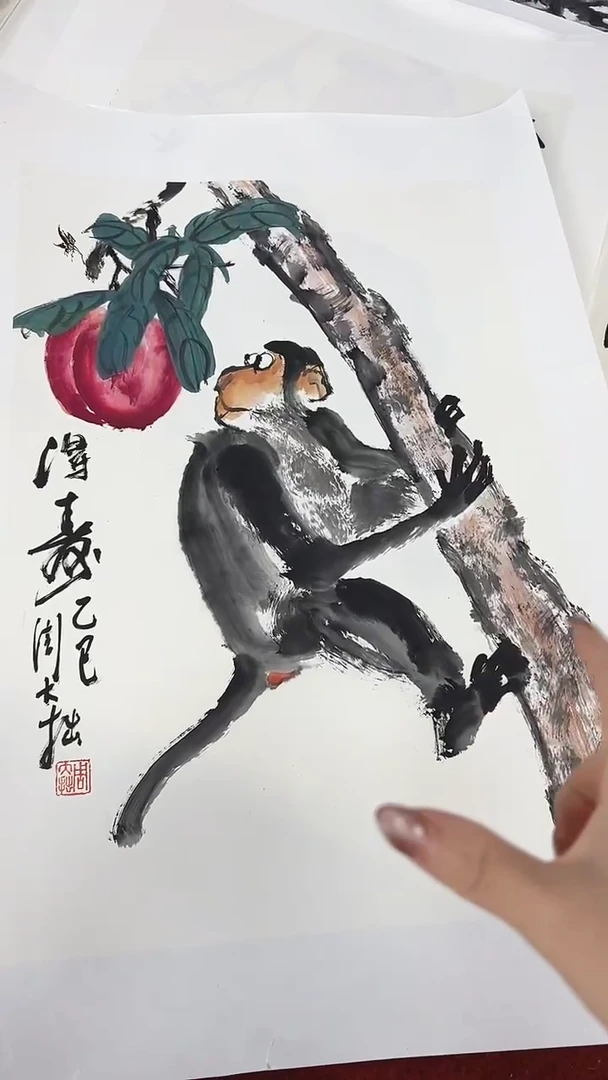 得寿
乙巳
周大拙
周大拙